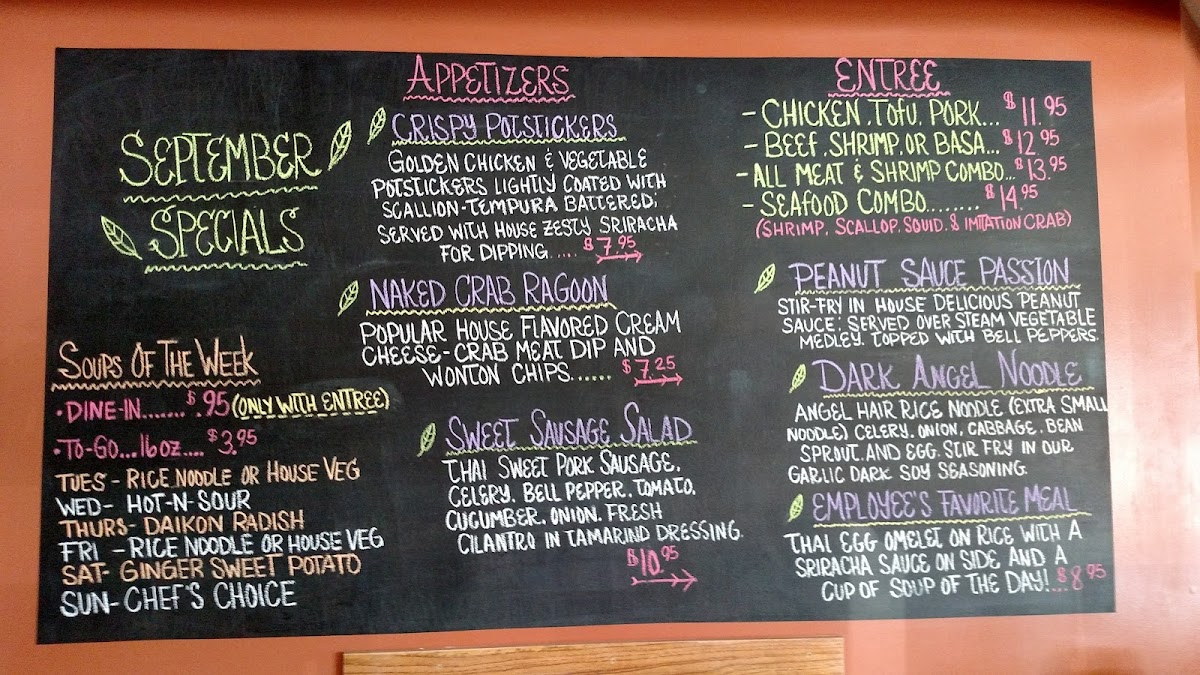 SEPTEMBER
SPECIALS
SOUPS OF THE WEEK
• DINE-IN....... $.95 (ONLY WITH ENTREE)
• TO-GO...16 OZ.... $3.95
TUES - RICE NOODLE OR HOUSE VEG
WED- HOT-N-SOUR
THURS- DAIKON RADISH
FRI - RICE NOODLE OR HOUSE VEG
SAT- GINGER SWEET POTATO
SUN- CHEF'S CHOICE
APPETIZERS
CRISPY POTSTICKERS
GOLDEN CHICKEN & VEGETABLE
POTSTICKERS LIGHTLY COATED WITH
SCALLION-TEMPURA BATTERED;
SERVED WITH HOUSE ZESTY SRIRACHA
FOR DIPPING..... $7.95
NAKED CRAB RAGOON
POPULAR HOUSE FLAVORED CREAM
CHEESE-CRAB MEAT DIP AND
WONTON CHIPS...... $7.25
SWEET SAUSAGE SALAD
THAI SWEET PORK SAUSAGE,
CELERY, BELL PEPPER, TOMATO,
CUCUMBER, ONION, FRESH
CILANTRO IN TAMARIND DRESSING.
$10.95
ENTREE
- CHICKEN, TOFU, PORK... $11.95
- BEEF, SHRIMP, OR BASA... $12.95
- ALL MEAT & SHRIMP COMBO... $13.95
- SEAFOOD COMBO........ $14.95
(SHRIMP, SCALLOP, SQUID, & IMITATION CRAB)
PEANUT SAUCE PASSION
STIR-FRY IN HOUSE DELICIOUS PEANUT
SAUCE; SERVED OVER STEAM VEGETABLE
MEDLEY, TOPPED WITH BELL PEPPERS.
DARK ANGEL NOODLE
ANGEL HAIR RICE NOODLE (EXTRA SMALL
NOODLE) CELERY, ONION, CABBAGE, BEAN
SPROUT, AND EGG. STIR FRY IN OUR
GARLIC DARK SOY SEASONING.
EMPLOYEE'S FAVORITE MEAL
THAI EGG OMELET ON RICE WITH A
SRIRACHA SAUCE ON SIDE AND A
CUP OF SOUP OF THE DAY!... $8.95